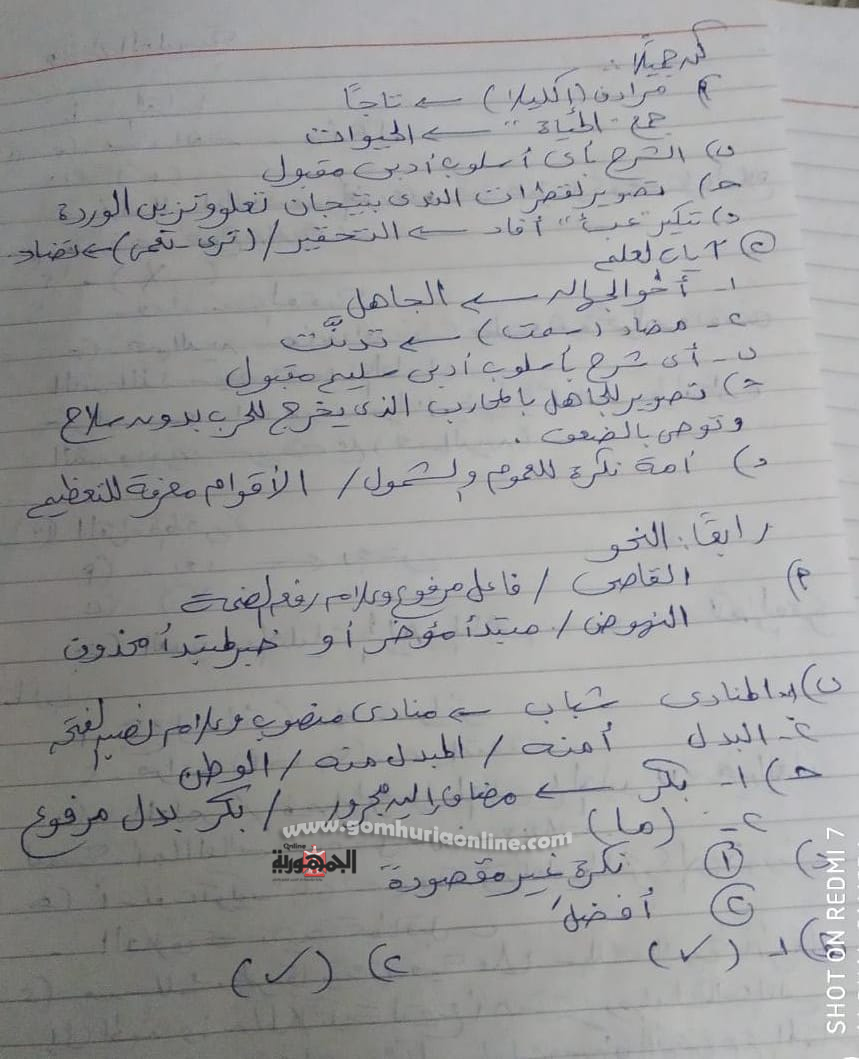 كن جميلًا :
أ) مرادف (إكليلا) ← تاجًا
جمع "الحياة" ← الحيوات
ب) الشرح بأى أسلوب أدبى مقبول
حـ) تصوير لقطرات الندى بتيجان تعلو وتزين الوردة
د) تنكير "عبئًا" أفاد ← التحقير / (ترى - تعمى) ← تضاد
٢ بالعلم
١- أخو الجهالة ← الجاهل
٢- مضاد (سمت) ← تدنَّت
ب- أى شرح بأسلوب أدبى سليم مقبول
حـ) تصوير للجاهل بالمحارب الذى يخرج للحرب بدون سلاح
وتوحى بالضعف .
د) أمة نكرة للعموم والشمول / الأقوام معرفة للتعظيم
رابعًا : النحو
أ) القاصى / فاعل مرفوع وعلامة رفعه الضمة
النهوض / مبتدأ مؤخر أو خبر لمبتدأ محذوف
ب) ١- المنادى شباب ← منادى منصوب وعلامة نصبه الفتحة
٢- البدل أمنه / المبدل منه / الوطن
حـ) ١- بكر ← مضاف إليه مجرور / بكر بدل مرفوع
٢- (ما)
www.gomhuriaonline.com
الجمهورية Online
د) ١ نكرة غير مقصودة
٢ أفضلُ
هـ) ١ (✓) ٢) (✓)
SHOT ON REDMI 7